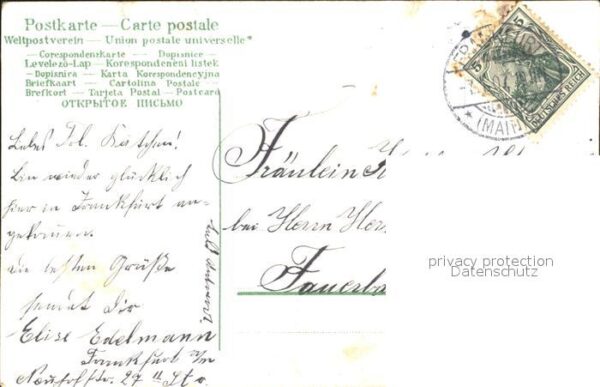 Postkarte — Carte postale
Weltpostverein — Union postale universelle*
— Correspondenzkarte — Dopisnice —
Levelező-Lap — Korespondeneni listek
— Dopisnica — Karta Korespondencyjna
Briefkaart — Cartolina Postale —
Brefkort — Tarjeta Postal — Postcard
ОТКРЫТОЕ ПИСЬМО
Liebes Frl. Kätchen!
Bin wieder glücklich
hier in Frankfurt an-
gekommen.
die besten Grüße
sendet Dir
Elise Edelmann
Frankfurt a/M
27 II St.
Fräulein
bei Herrn
Fauerba
5 5
DEUTSCHES REICH
* (MAIN)
privacy protection
Datenschutz